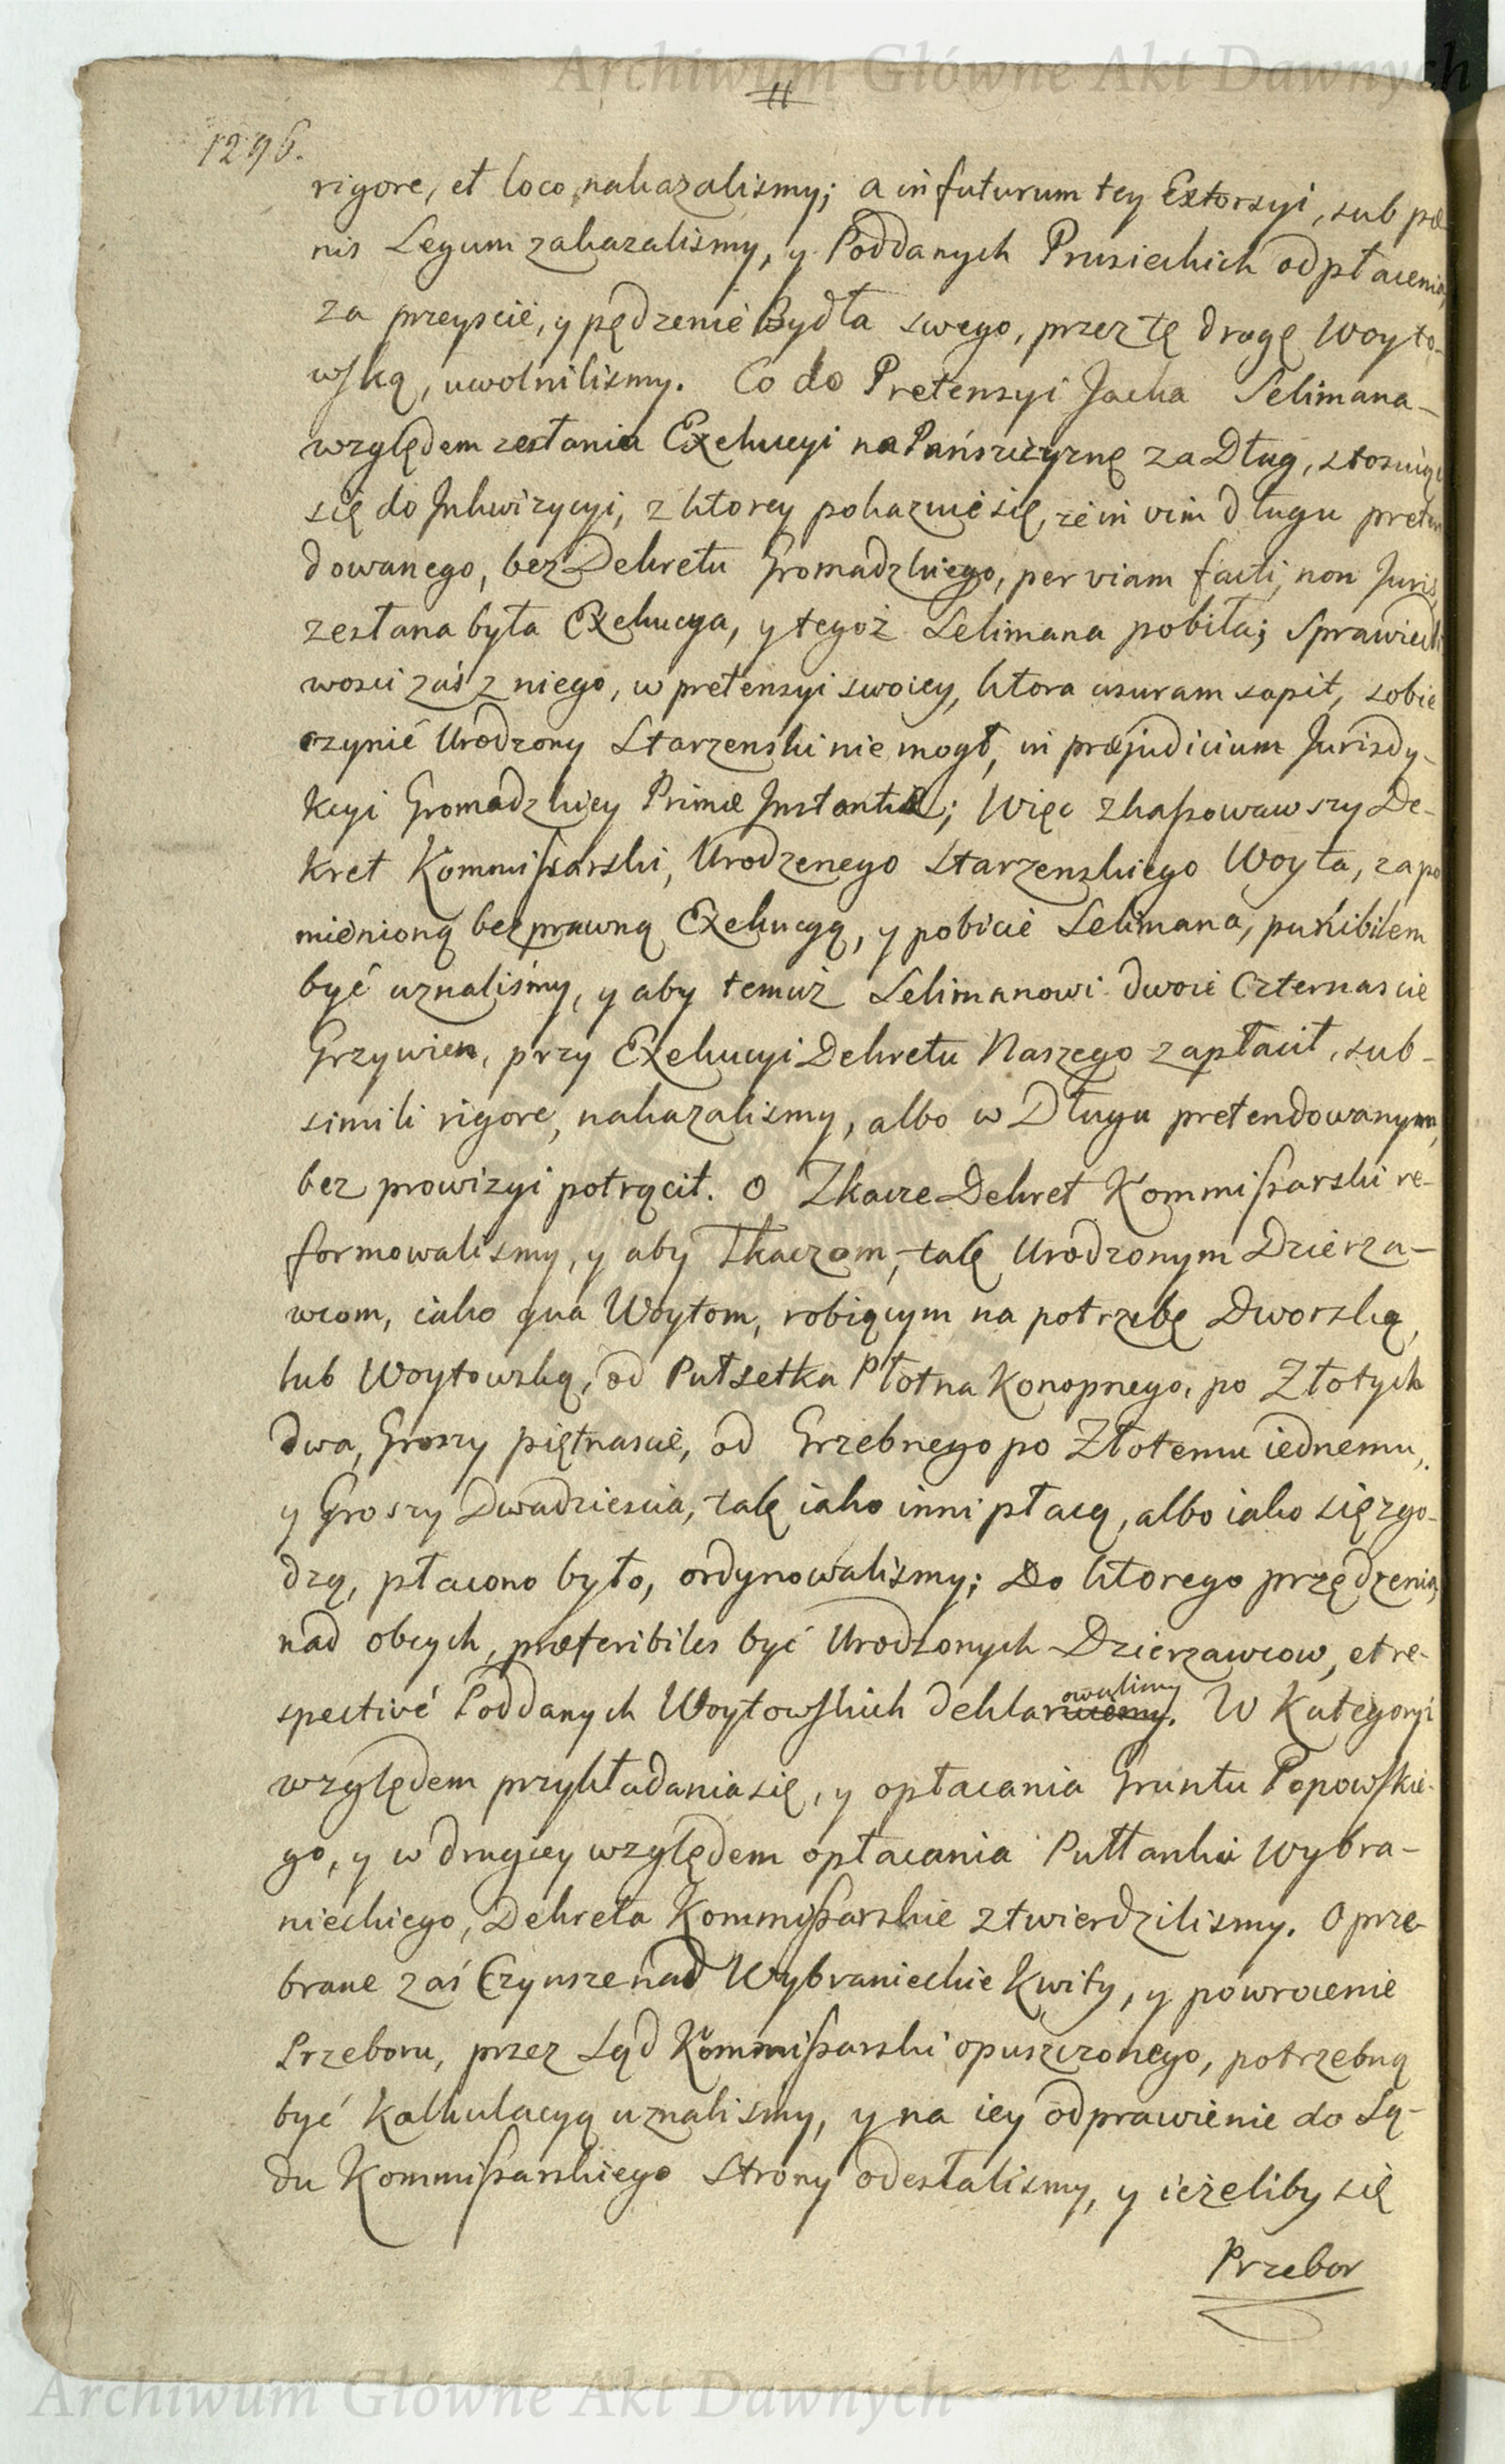 Archiwum Główne Akt Dawnych
11
1296.
rigore, et loco nakazalismy; a in futurum tey Extorsyi, sub pæ
nis Legum zakazalismy, y Poddanych Prusieckich od płacenia,
za przeyscie, y pędzenie Bydła swego, przez tę drogę Woyto-
wską, uwolnilismy. Co do Pretensyi Jacka Selimana
względem zesłania Exekucyi na Pańszczyznę za Dług, stosuiąc
się do Inkwizycyi, z ktorey pokazuie się, że in vim długu preten
dowanego, bez Dekretu Gromadzkiego, per viam facti, non Juris,
zesłana była Exekucya, y tegoż Selimana pobiła; Sprawiedli
wosci zaś z niego, w pretensyi swoiey, ktora usuram sapit, sobie
czynić Urodzony Starzenski nie mogł, in præjudicium Jurisdy-
kcyi Gromadzkiey Primæ Instantiæ; Więc zkassowawszy De-
kret Kommissarski, Urodzenego Starzenskiego Woyta, za po
mienioną bezprawną Exekucyą, y pobicie Selimana, punibilem
być uznaliśmy, y aby temuż Selimanowi dwoie Czternascie
Grzywien, przy Exekucyi Dekretu Naszego zapłacił, sub-
simili rigore, nakazalismy, albo w Długu pretendowanym,
bez prowizyi potrącił. O Tkacze Dekret Kommissarski re-
formowalismy, y aby Tkaczom, tak Urodzonym Dzierza-
wcom, iako qua Woytom, robiącym na potrzebę Dworską,
lub Woytowską, od Pułsetka Płotna Konopnego, po Złotych
dwa, Groszy piętnascie, od Grzebnego po Złotemu iednemu,
y Groszy Dwadziescia, tak iako inni płacą, albo iako się zgo-
dzą, płacono było, ordynowalismy; Do ktorego przędzenia,
nad obcych, præferibiles być Urodzonych Dzierzawcow, et re-
spectivé Poddanych Woytowskich deklaruiemy owalismy. W Kategoryi
względem przykładania się, y opłacania Gruntu Popowskie-
go, y w drugiey względem opłacania Pułłanku Wybra-
nieckiego, Dekreta Kommissarskie ztwierdzilismy. O prze-
brane zaś Czynsze nad Wybranieckie Kwity, y powrocenie
Przeboru, przez Sąd Kommissarski opuszczonego, potrzebną
być Kalkulacyą uznalismy, y na iey odprawienie do Są-
du Kommissarskiego Strony odesłalismy, y ieżeliby się
Przebor
Archiwum Główne Akt Dawnych